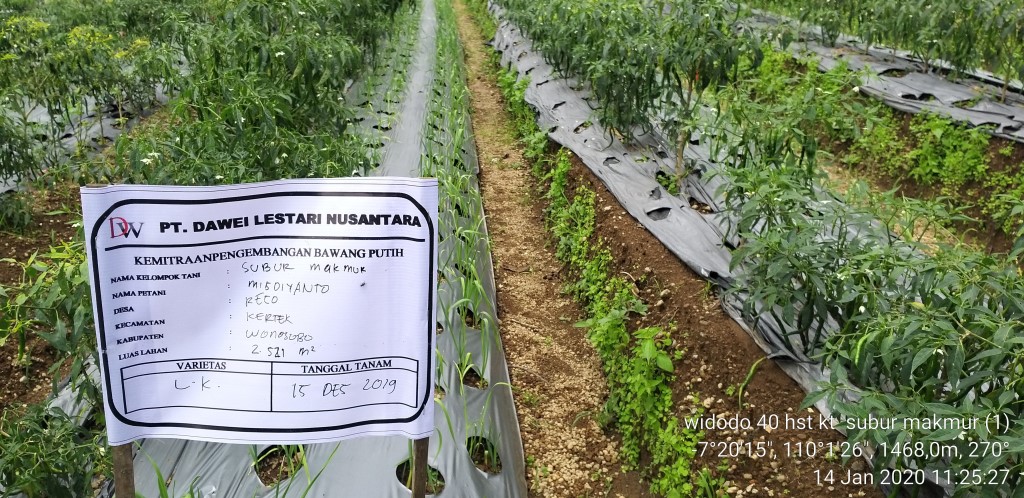 DW PT. DAWEI LESTARI NUSANTARA
KEMITRAANPENGEMBANGAN BAWANG PUTIH
NAMA KELOMPOK TANI : SUBUR makmur
NAMA PETANI : MISDIYANTO
DESA : RECO
KECAMATAN : KERTEK
KABUPATEN : WONOSOBO
LUAS LAHAN : 2.521 m²
VARIETAS TANGGAL TANAM
L.K. 15 DES 2019
widodo 40 hst kt subur makmur (1)
-7°20'15", 110°1'26", 1468,0m, 270°
14 Jan 2020 11:25:27